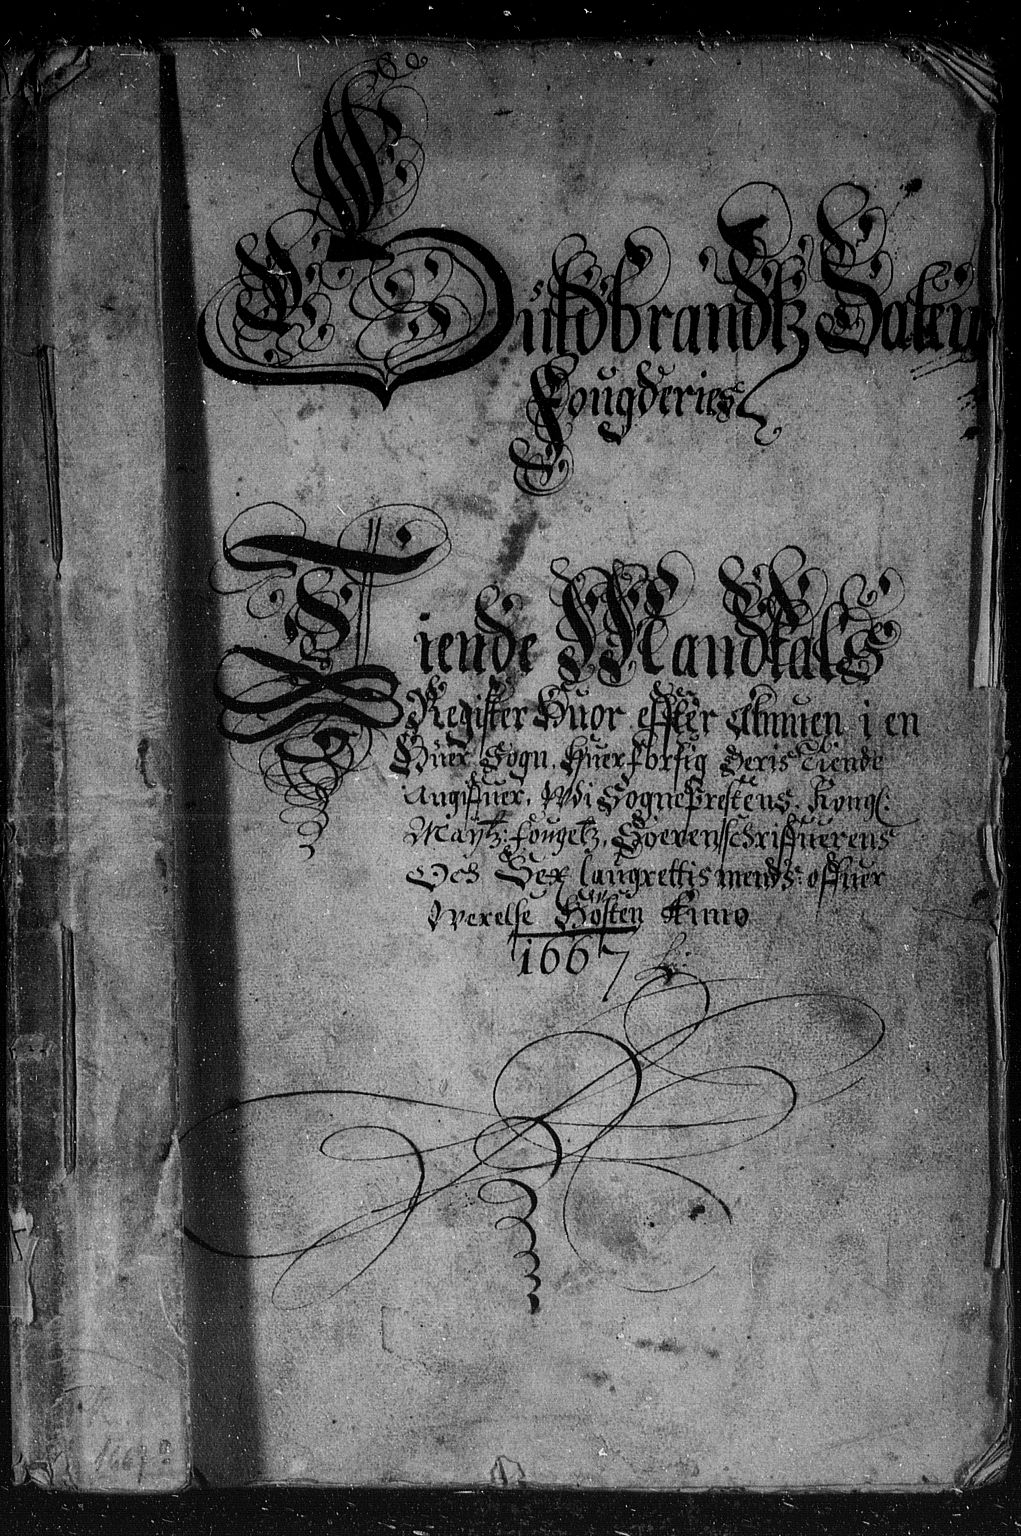 Guldbrandtz Dalens
Fougderies
Tiende Mandtals
Register Huor effter Almuen i en
Huer Sogn, Huer for sig deris Tiende
Angiffuer, Wdi Sogneprestens, Kongl:
Maytz: fougetz, Soerenschriffuerens
Och Sex laugrettismends offuer
Werelse Hösten Anno
1667
1667